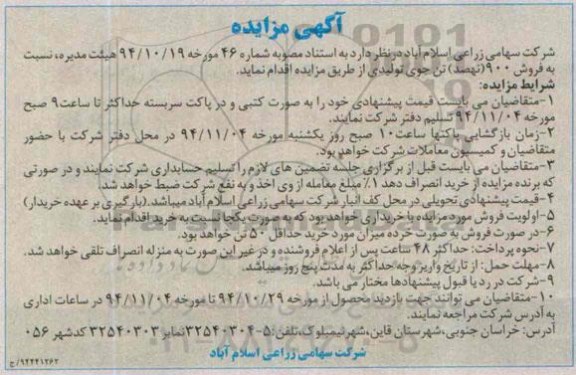 آگهی مزایده
شرکت سهامی زراعی اسلام آباد در نظر دارد به استناد مصوبه شماره ۴۶ مورخه ۹۴/۱۰/۱۹ هیئت مدیره، نسبت
به فروش ۹۰۰ (نهصد) تن جوی تولیدی از طریق مزایده اقدام نماید.
شرایط مزایده:
۱-متقاضیان می بایست قیمت پیشنهادی خود را به صورت کتبی و در پاکت سربسته حداکثر تا ساعت ۹ صبح
مورخه ۹۴/۱۱/۰۴ تسلیم دفتر شرکت نمایند.
۲-زمان بازگشایی پاکتها ساعت ۱۰ صبح روز یکشنبه مورخه ۹۴/۱۱/۰۴ در محل دفتر شرکت با حضور
متقاضیان و کمیسیون معاملات شرکت خواهد بود.
۳-متقاضیان می بایست قبل از برگزاری جلسه تضمین های لازم را تسلیم حسابداری شرکت نمایند و در صورتی
که برنده مزایده از خرید انصراف دهد ۱٪ مبلغ معامله از وی اخذ و به نفع شرکت ضبط خواهد شد.
۴-قیمت پیشنهادی تحویلی در محل کف انبار شرکت سهامی زراعی اسلام آباد میباشد.(بارگیری بر عهده خریدار)
۵-اولویت فروش مورد مزایده با خریداری خواهد بود که به صورت یکجا نسبت به خرید اقدام نماید.
۶-در صورت فروش به صورت خرده میزان مورد خرید حداقل ۵۰ تن خواهد بود.
۷-نحوه پرداخت: حداکثر ۴۸ ساعت پس از اعلام فروشنده و در غیر این صورت به منزله انصراف تلقی خواهد شد.
۸-مهلت حمل: از تاریخ واریز وجه حداکثر به مدت پنج روز میباشد.
۹-شرکت در رد یا قبول پیشنهادها مختار می باشد.
۱۰-متقاضیان می توانند جهت بازدید محصول از مورخه ۹۴/۱۰/۲۹ تا مورخه ۹۴/۱۱/۰۴ در ساعات اداری
به آدرس شرکت مراجعه نمایند.
آدرس: خراسان جنوبی،شهرستان قاین،شهر نیمبلوک،تلفن:۵-۳۲۵۴۰۳۰۴ نمابر ۳۲۵۴۰۳۰۳ کدشهر ۰۵۶
شرکت سهامی زراعی اسلام آباد
۹۴۴۴۱۲۶۲/ج